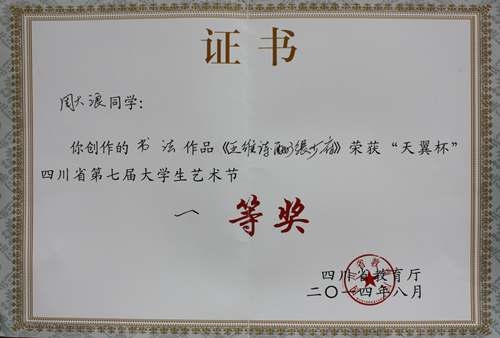 证书
周大浪同学：
你创作的书法作品《王维诗酬张少府》荣获“天翼杯”
四川省第七届大学生艺术节
一等奖
四川省教育厅
二〇一四年八月